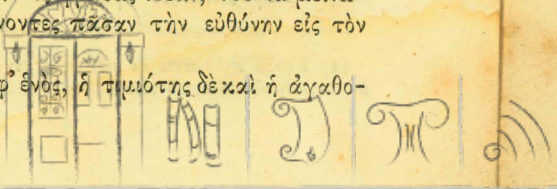 νοντες πᾶσαν τὴν εὐθύνην εἰς τὸν
φ' ἑνὸς, ἡ τιμιότης δὲ καὶ ἡ ἀγαθο-